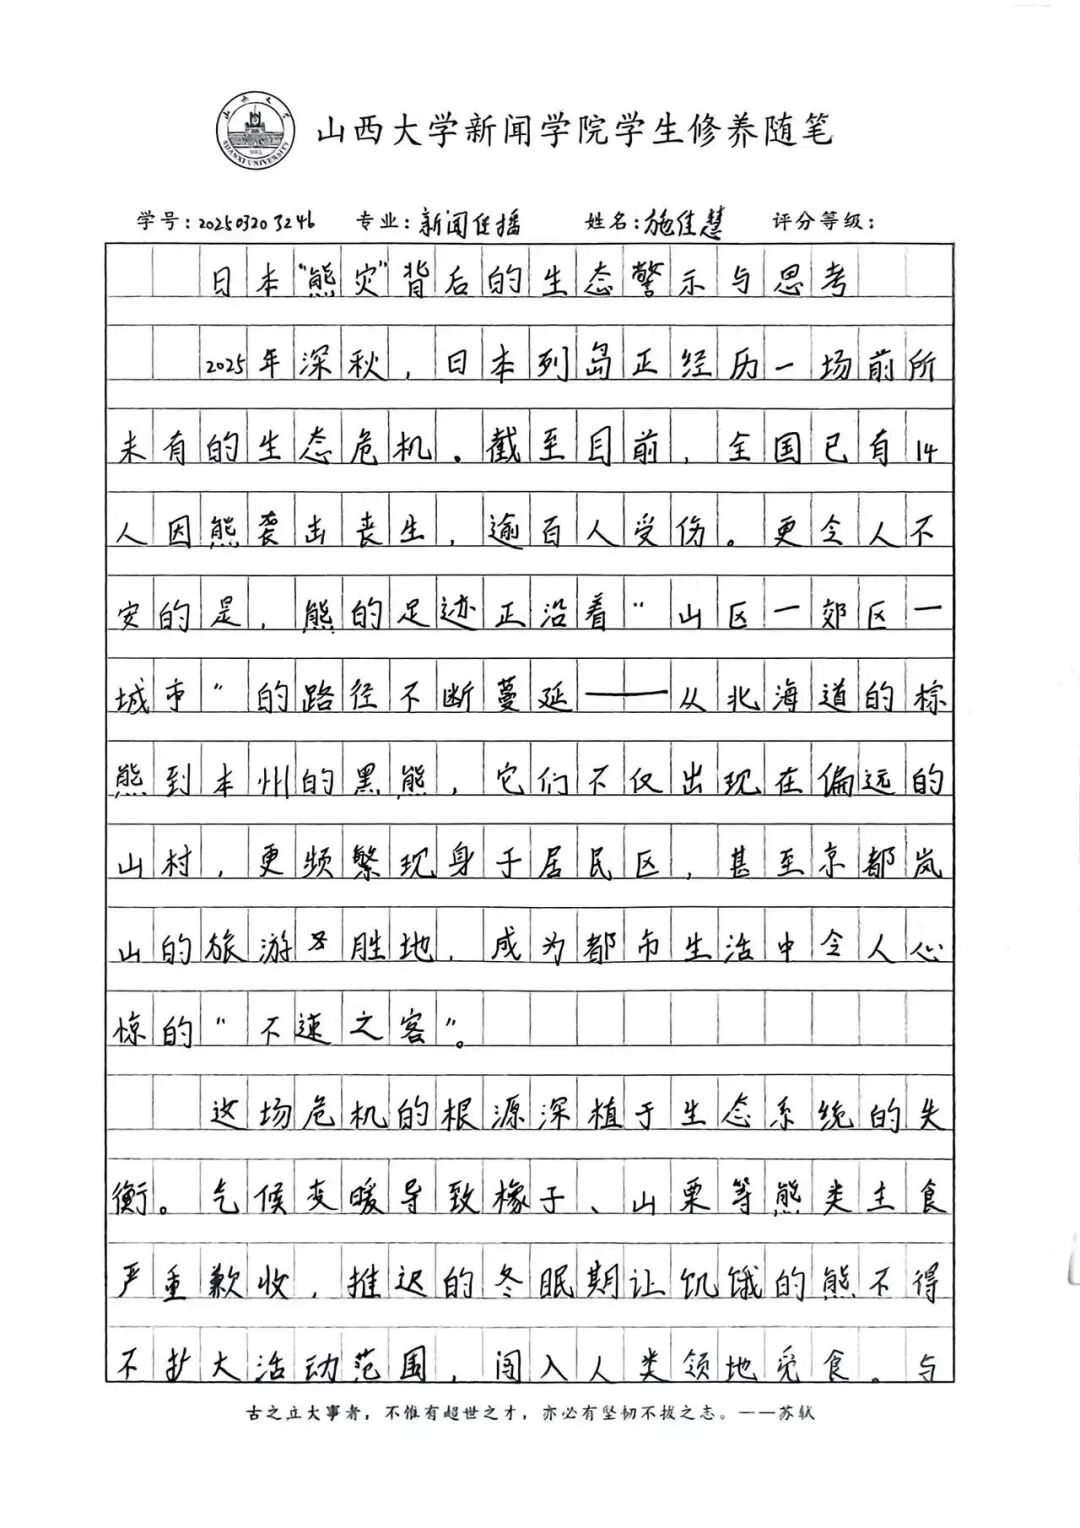 山西大学新闻学院学生修养随笔
学号：202503203246 专业：新闻传播 姓名：施佳慧 评分等级：
日本“熊灾”背后的生态警示与思考
2025年深秋，日本列岛正经历一场前所
未有的生态危机。截至目前，全国已有14
人因熊袭击丧生，逾百人受伤。更令人不
安的是，熊的足迹正沿着“山区—郊区—
城市”的路径不断蔓延——从北海道的棕
熊到本州的黑熊，它们不仅出现在偏远的
山村，更频繁现身于居民区，甚至京都岚
山的旅游胜地，成为都市生活中令人心
惊的“不速之客”。
这场危机的根源深植于生态系统的失
衡。气候变暖导致橡子、山栗等熊类主食
严重歉收，推迟的冬眠期让饥饿的熊不得
不扩大活动范围，闯入人类领地觅食。与
古之立大事者，不惟有超世之才，亦必有坚韧不拔之志。——苏轼